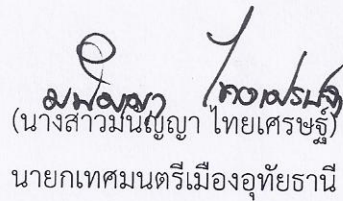 (นางสาวมนัญญา ไทยเศรษฐ์)
นายกเทศมนตรีเมืองอุทัยธานี